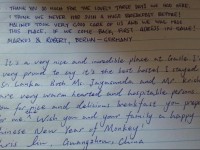 THANK YOU SO MUCH FOR THE LOVELY THREE DAYS WE HAD HERE.
I THINK WE NEVER HAD SUCH A HUGE BREAKFAST BEFORE!
MELANY TOOK VERY GOOD CARE OF US AND WE WILL MISS
THIS PLACE. IF WE COME BACK, FIRST ADRESS IN GALLE!
& ROBERT, BERLIN - GERMANY
It's a very nice and incredible place at Galle. I
very proud to say it's the best hostel I stayed
Sri Lanka. Both Ms Jayananda and Mr.
are very warm hearted and hospitable persons
for nice and delicious breakfast you prepare
for me. Wish you and your family a happy
Chinese New Year of "Monkey"!
Guangzhou, China